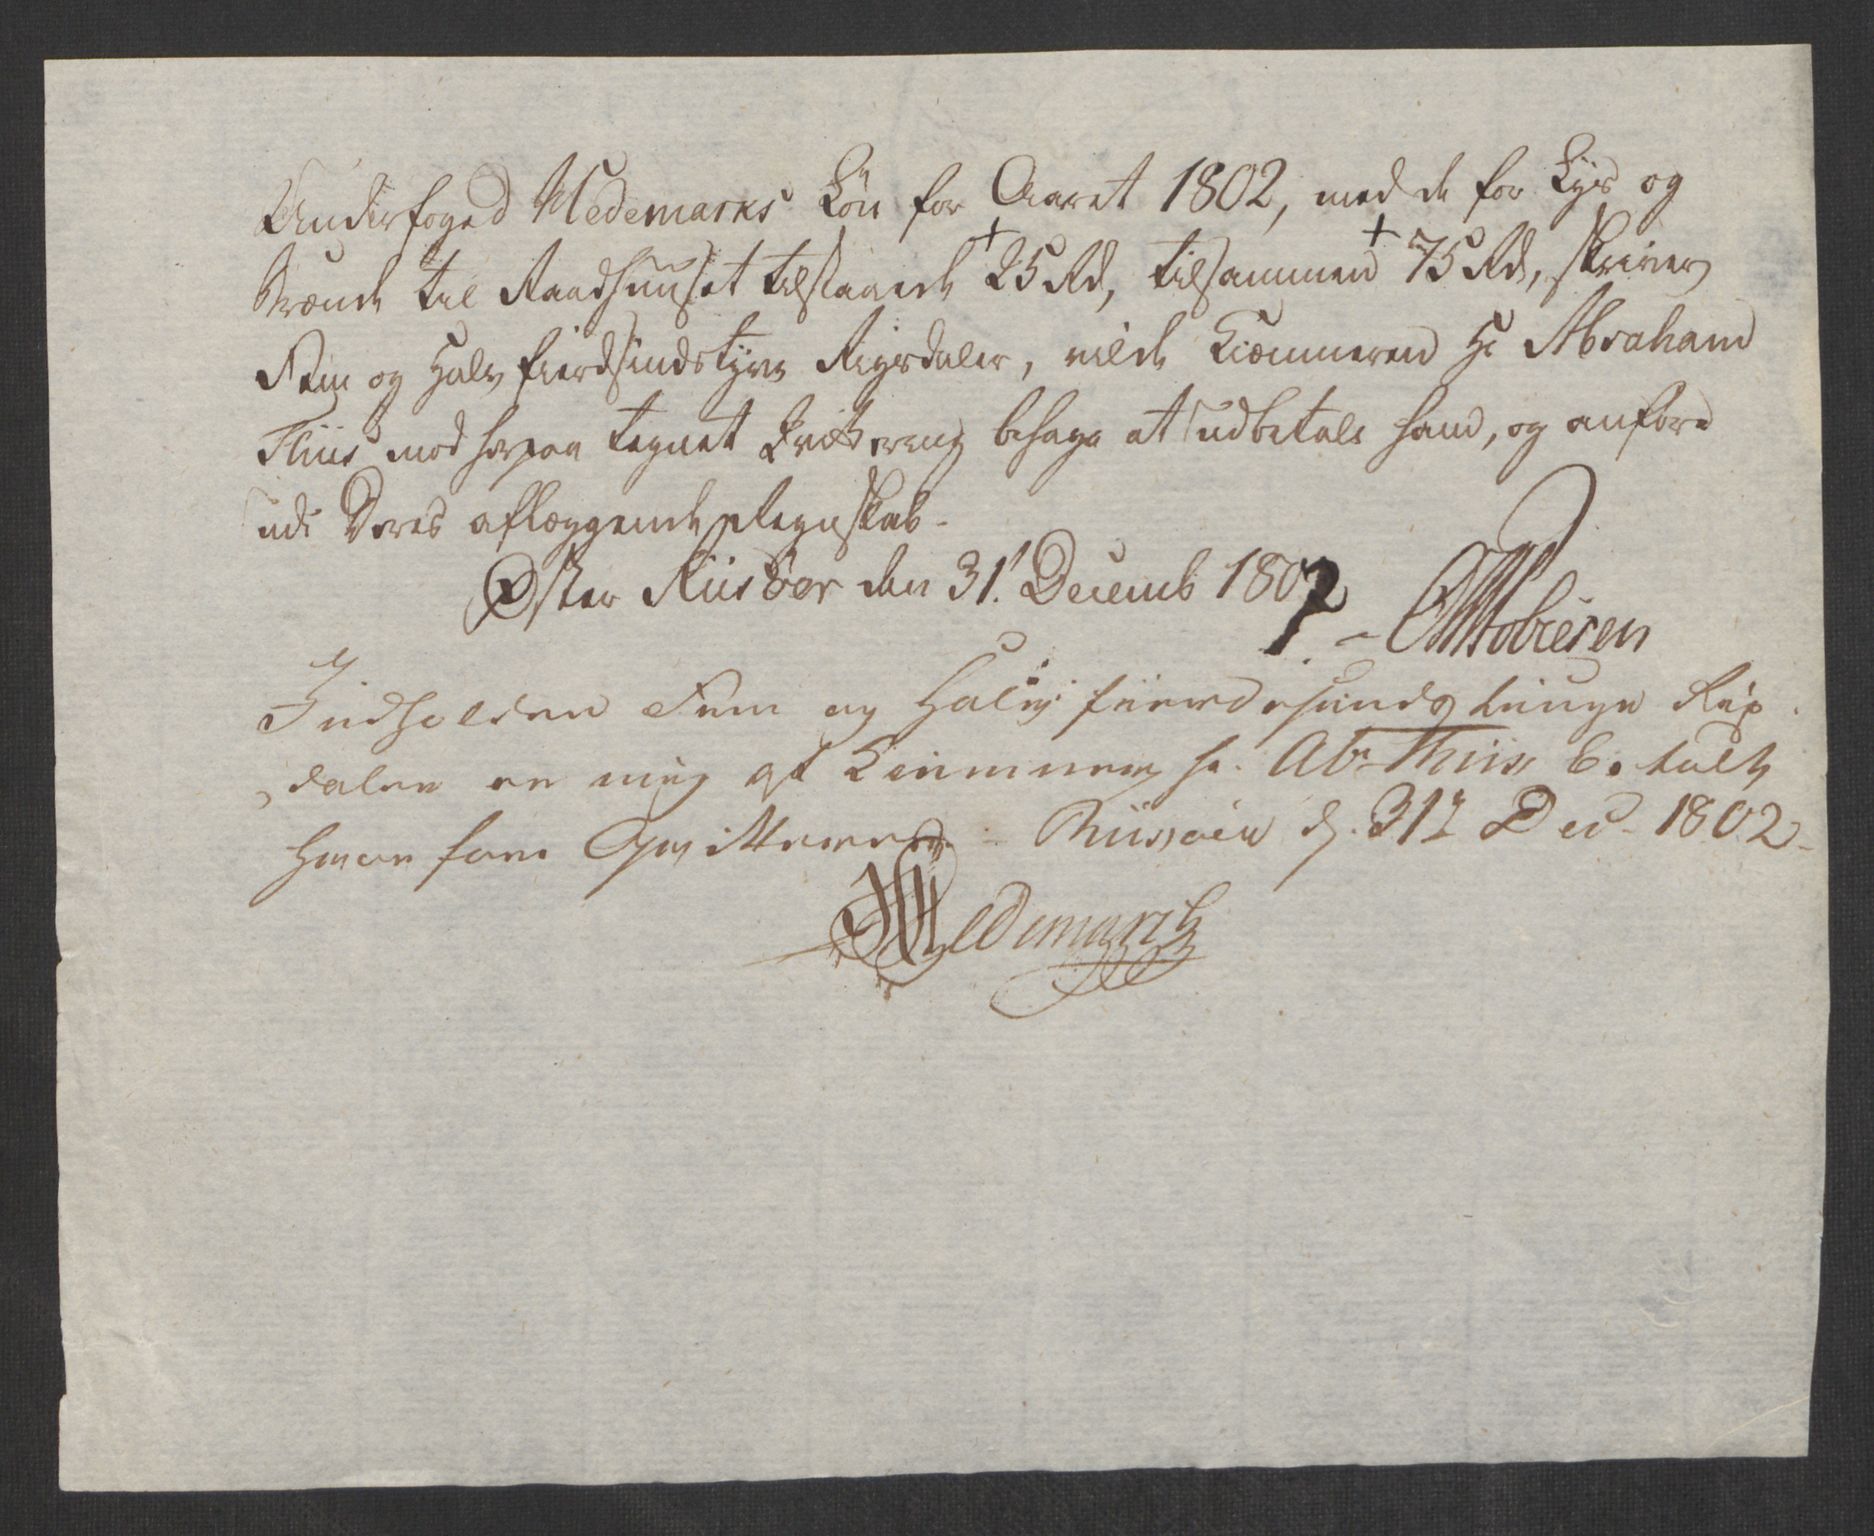 Underfoged Nedemarks Løn for Aaret 1802, med de for Lys og
Brænde til Raadhuuset tilstaaede + 25 Rd, tilsammen + 75 Rd, skriver
Fem og Halvfierdsindstyve Rigsdaler, vilde Kiæmmeren Hr Abraham
Thiis mod herpaa tegnet Qvittering behage at udbetale ham, og anføre
udi Deres aflæggende Regnskab.
Øster Riisöer den 31. Decemb 1802
Tobiesen
Indholden Fem og Halvfierdesindstiuge Rix
daler er mig af Kemmner hr. Abr Thiis betalt
hvorfore Qvitteres. Riisöer d. 31t Decb 1802
Nedemark